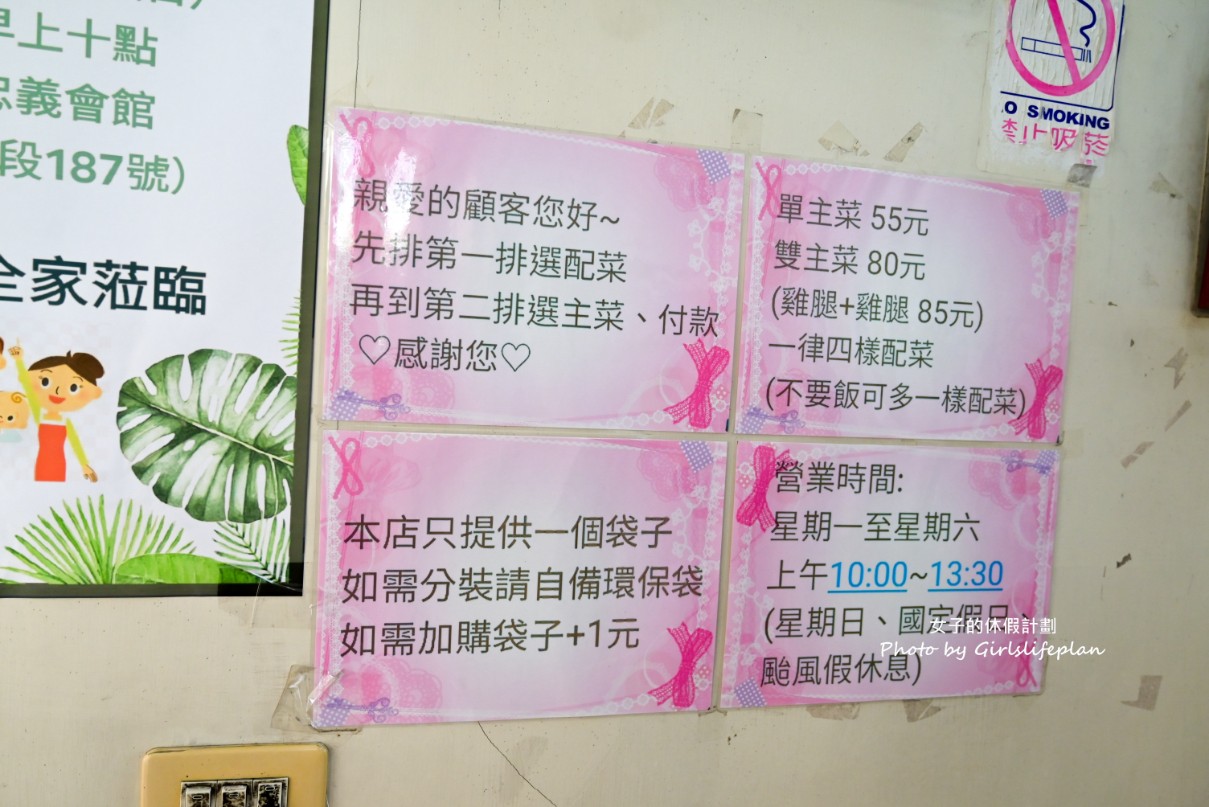 早上十點
忠義會館
段187號)
全家蒞臨
NO SMOKING
禁止吸菸
親愛的顧客您好~
先排第一排選配菜
再到第二排選主菜、付款
♡感謝您♡
單主菜 55元
雙主菜 80元
(雞腿+雞腿 85元)
一律四樣配菜
(不要飯可多一樣配菜)
本店只提供一個袋子
如需分裝請自備環保袋
如需加購袋子+1元
營業時間:
星期一至星期六
上午10:00~13:30
(星期日、國定假日、
颱風假休息)
女子的休假計劃
Photo by Girlslifeplan